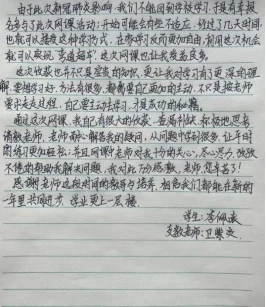 由于此次新冠肺炎影响,我们不能回到学校学习,于是有幸报
名参与了此次网课活动;开始可能会有些不适应,经过了几天时间
也就可以接受这种学习方式,在家学习反而更加自由,利用这次机会
就可以实现"弯道超车",这次网课也让我受益良多。
这次收获也并不只是变厚的知识,更让我对学习有了更深的理
解,要想学好,方法有很多,都需要自己更加的主动,不只是按老师
要求走走过程,自己要主动学习,才是成功的秘籍。
通过这次网课,我自己有很大的收获,查漏补缺,积极地思考
请教老师,老师耐心解答我的疑问,从问题中学到很多,让平时
的练习更加轻松;并且网课中老师对我十分的关心,尽心尽力,孜孜
不倦的帮助我解决问题,我对此万分感激,老师,您辛苦了!
感谢老师这段时间的教导与培养,祝愿我们都能在新的
一年里共同进步,学业更上一层楼。
学生:李佩
支教老师:卫